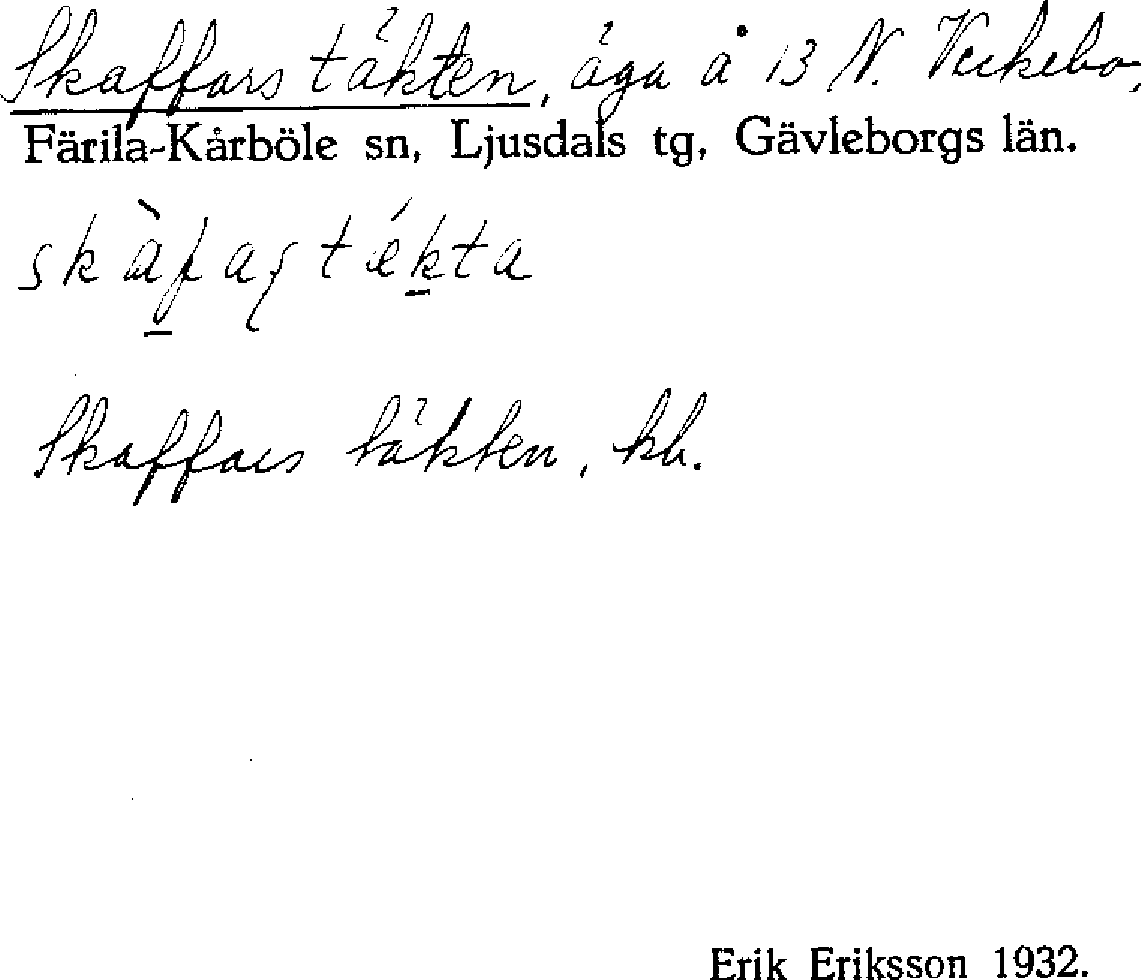 Skaffars täkten, äga å 13 N. Veckebo,
Färila-Kårböle sn, Ljusdals tg, Gävleborgs län.
Skaffars täkten, kb.
Erik Eriksson 1932.